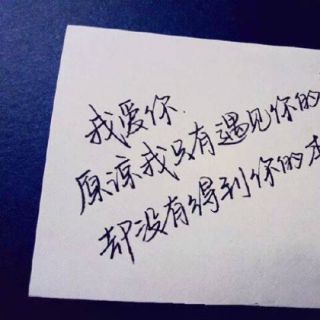 我爱你.
原谅我只有遇见你的
却没有得到你的